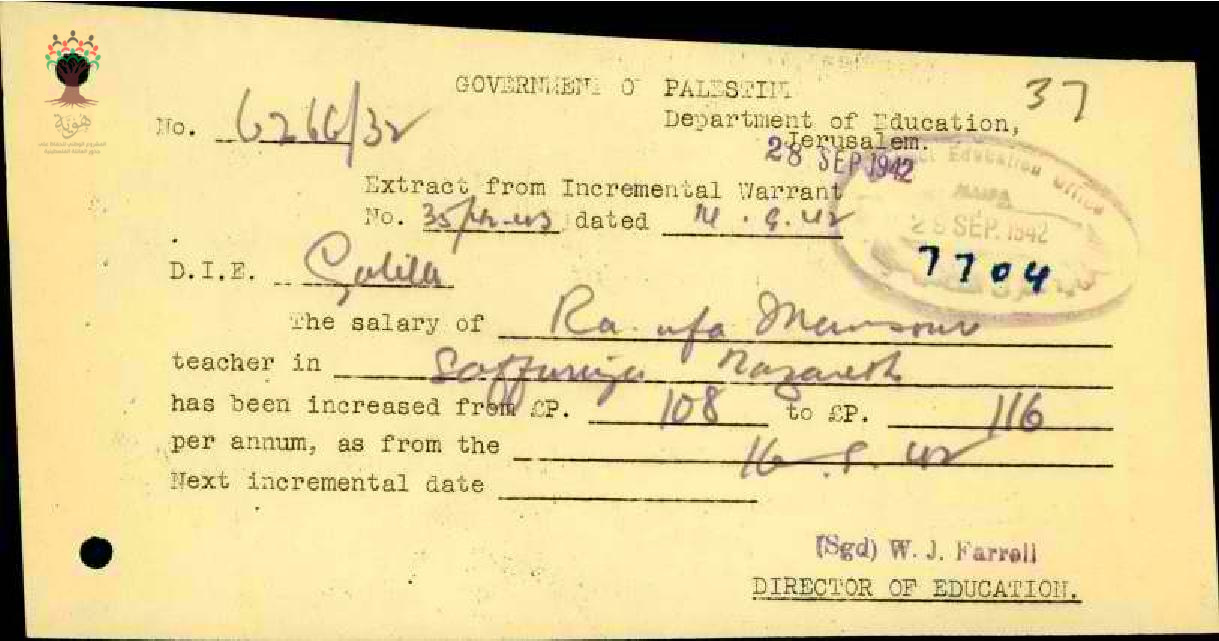 هوية
GOVERNMENT O PALESTIN
37
No. 6266/32
Department of Education,
Jerusalem.
28 SEP 1942
District Education Office
HAIFA
29 SEP. 1942
7704
Extract from Incremental Warrant
No. 35/42-43 dated 14.9.42
D.I.E. Galilee
The salary of Ra ufa Mansour
teacher in Saffuriya Nazareth
has been increased from £P. 108 to £P. 116
per annum, as from the 16.8.42
Next incremental date
(Sgd) W. J. Farrell
DIRECTOR OF EDUCATION.